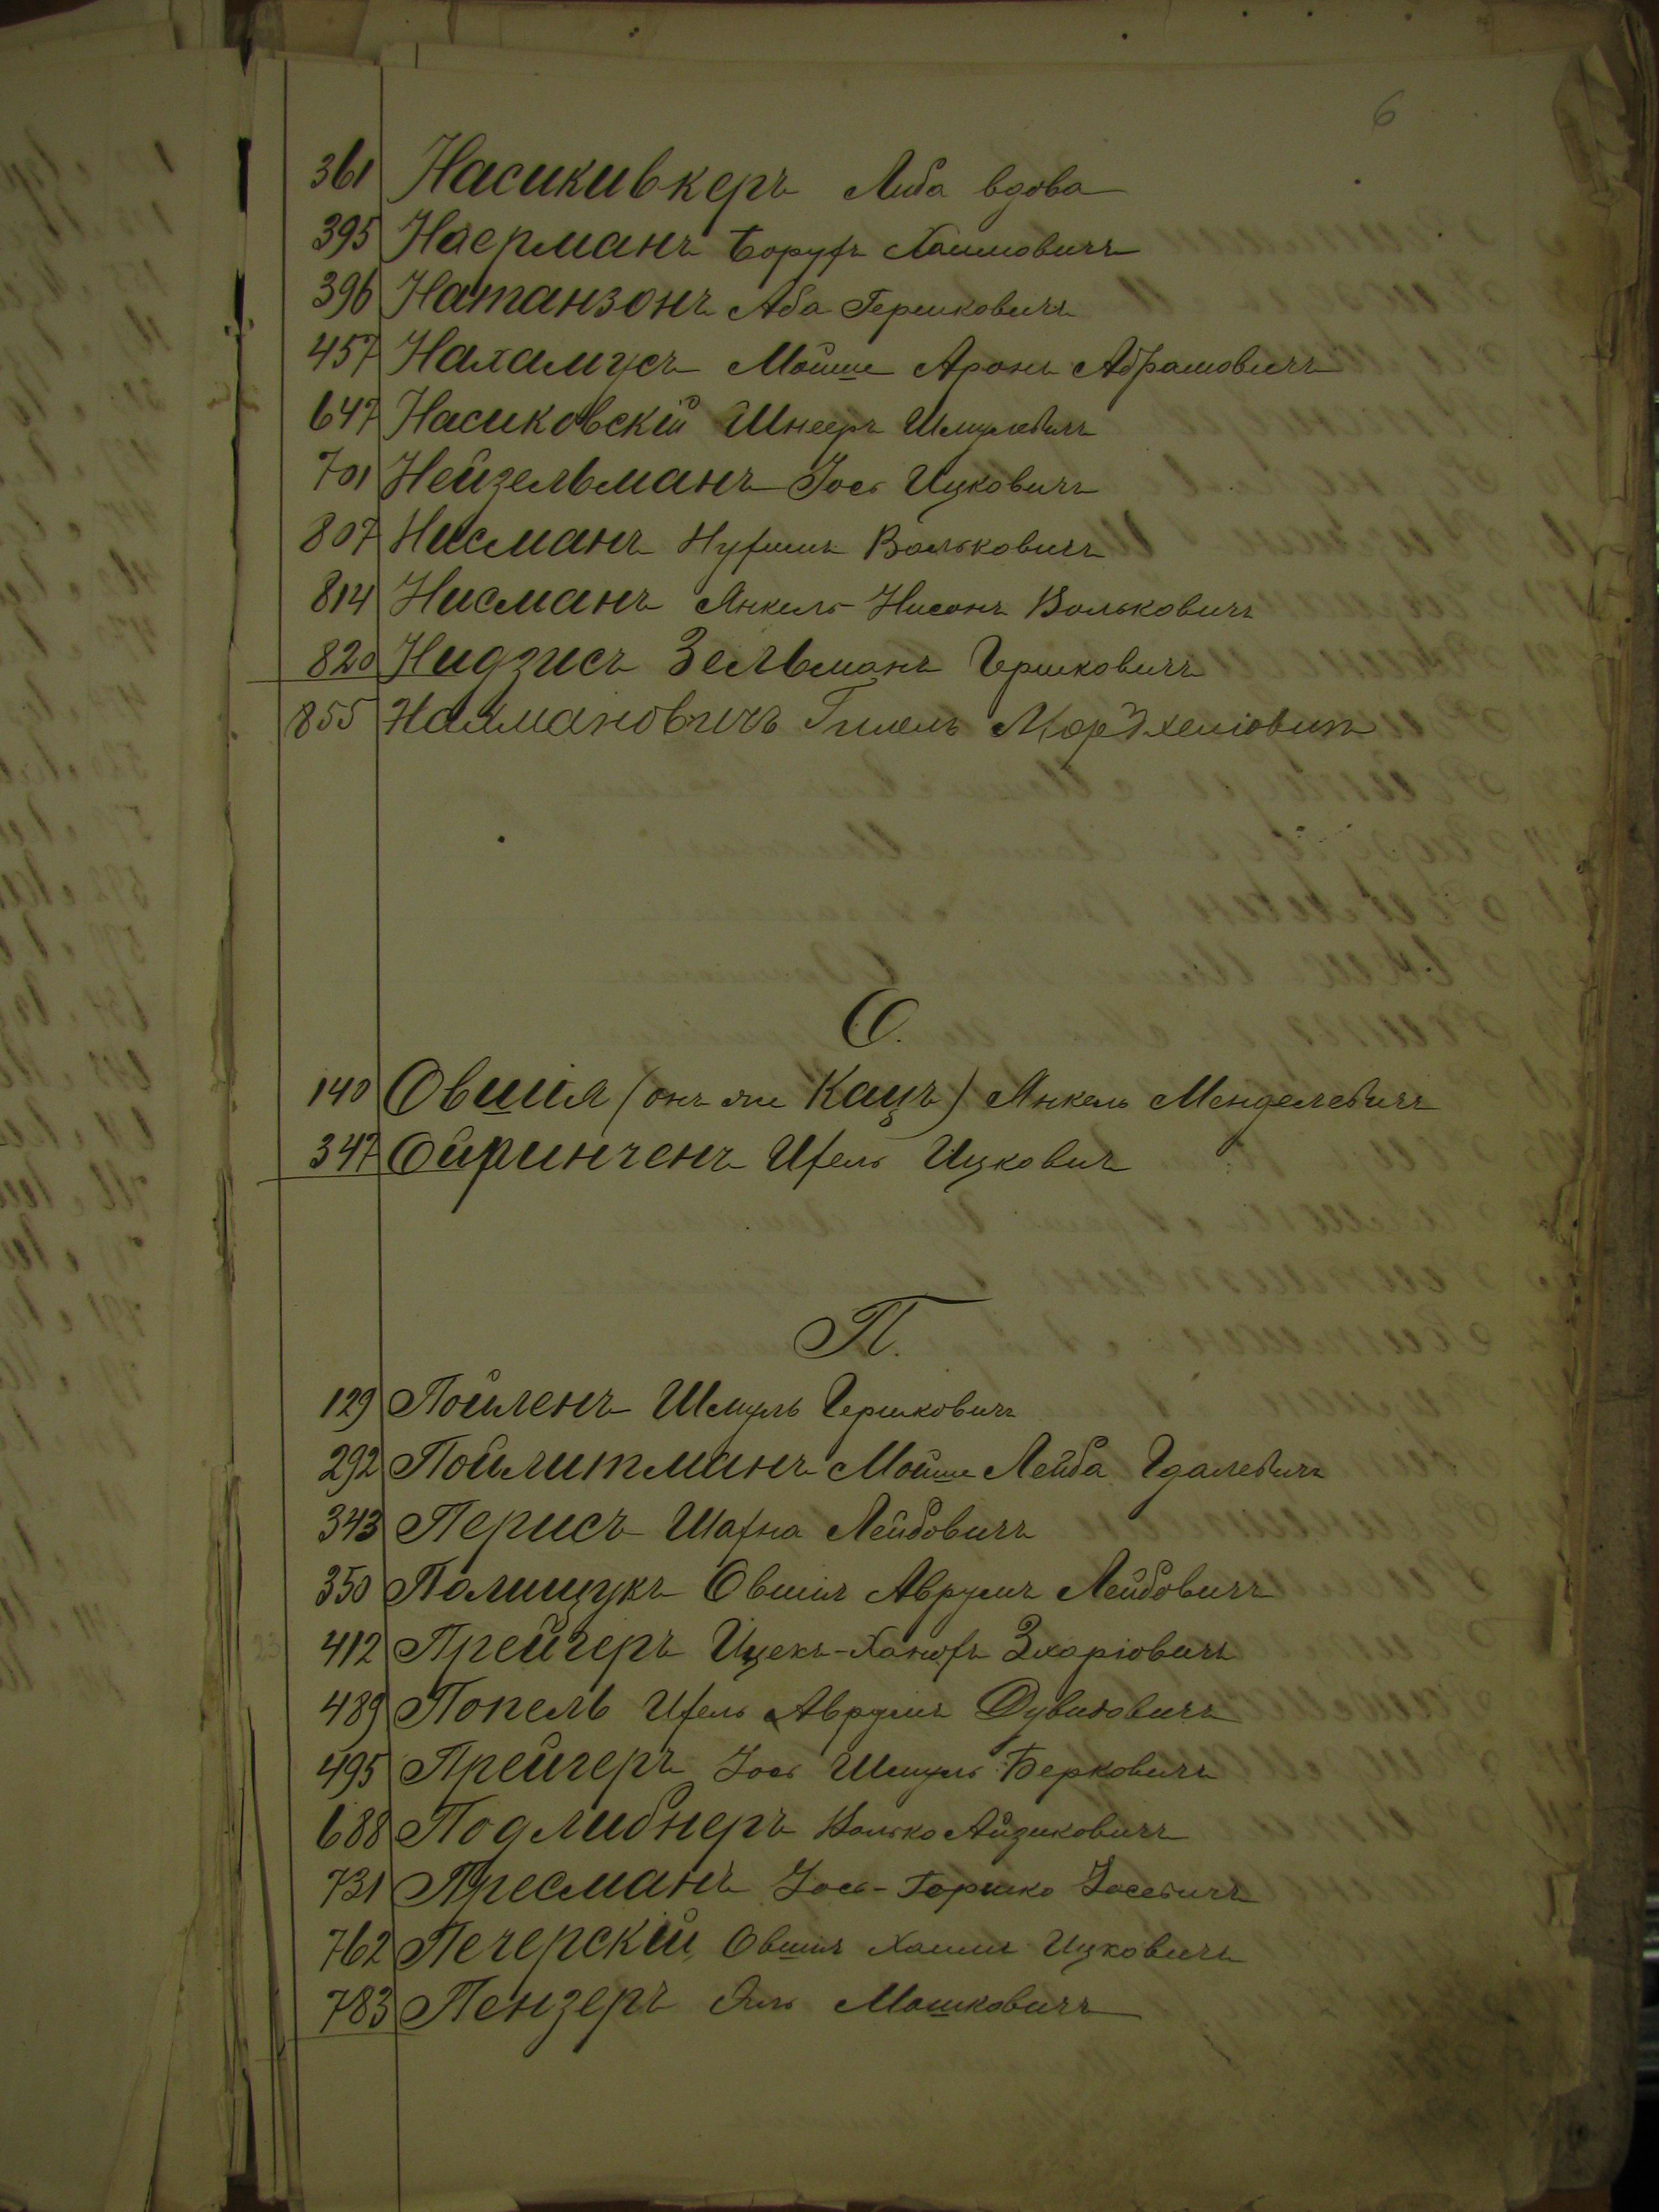 6
361 Насикивкеръ Либа вдова
395 Наерманъ Борухъ Хаимовичъ
396 Натанзонъ Аба Гершковичъ
457 Нахамчусъ Мойше Аронъ Абрамовичъ
647 Насиковскій Шнееръ Шмулевичъ
701 Нейзельманъ Іось Ицковичъ
807 Нисманъ Нухимъ Вольковичъ
814 Нисманъ Янкель-Нисонъ Вольковичъ
820 Нидзисъ Зельманъ Гершковичъ
855 Нахмановичъ Гилель
О.
140 Овшія (онъ же Кацъ) Янкель Менделевичъ
347 Ойринченъ Ихель Ицковичъ
П.
129 Пойленъ Шмуль Гершковичъ
292 Пойлитманъ Мойше Лейба Гдалевичъ
343 Перисъ Шахна Лейбовичъ
350 Полищукъ Овшія Аврумъ Лейбовичъ
412 Прейгеръ Ицекъ-Ханохъ Зхаріовичъ
489 Попель Ихель Аврумъ Дувидовичъ
495 Прейгеръ Іось Шмуль Берковичъ
688 Подлибнеръ Волько Айзиковичъ
731 Пресманъ Іось-Гершко Іосевичъ
762 Печерскій Овшія Хаимъ Ицковичъ
783 Пензеръ Эль Мошковичъ